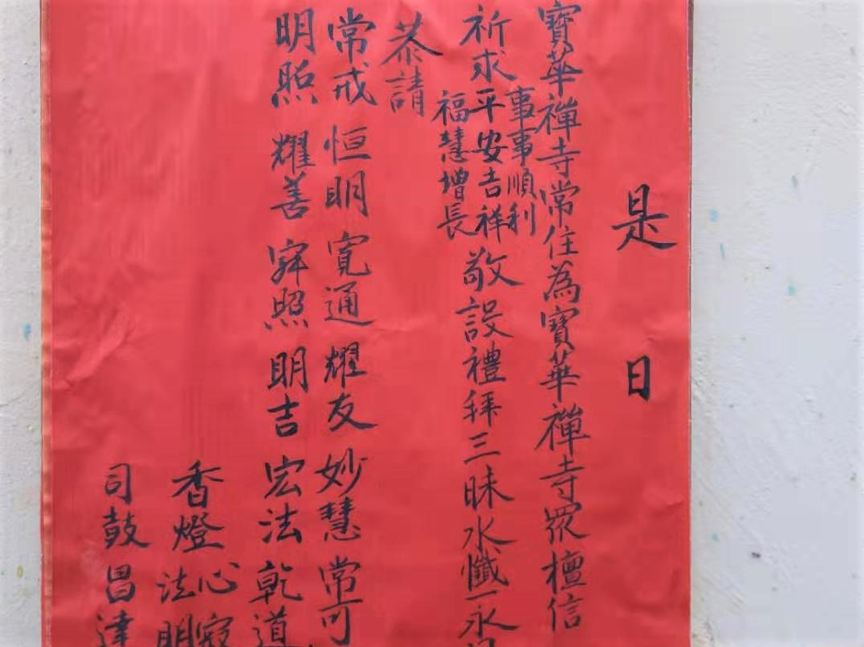 是日
寶華禪寺常住為寶華禪寺眾檀信
祈求
事事順利
平安吉祥
福慧增長
敬設禮拜三昧水懺一永
恭請
常戒 恒明 寬通 耀友 妙慧 常可
明照 耀善 寂照 明吉 宏法 乾道
香燈 心寂
法明
司鼓 昌達